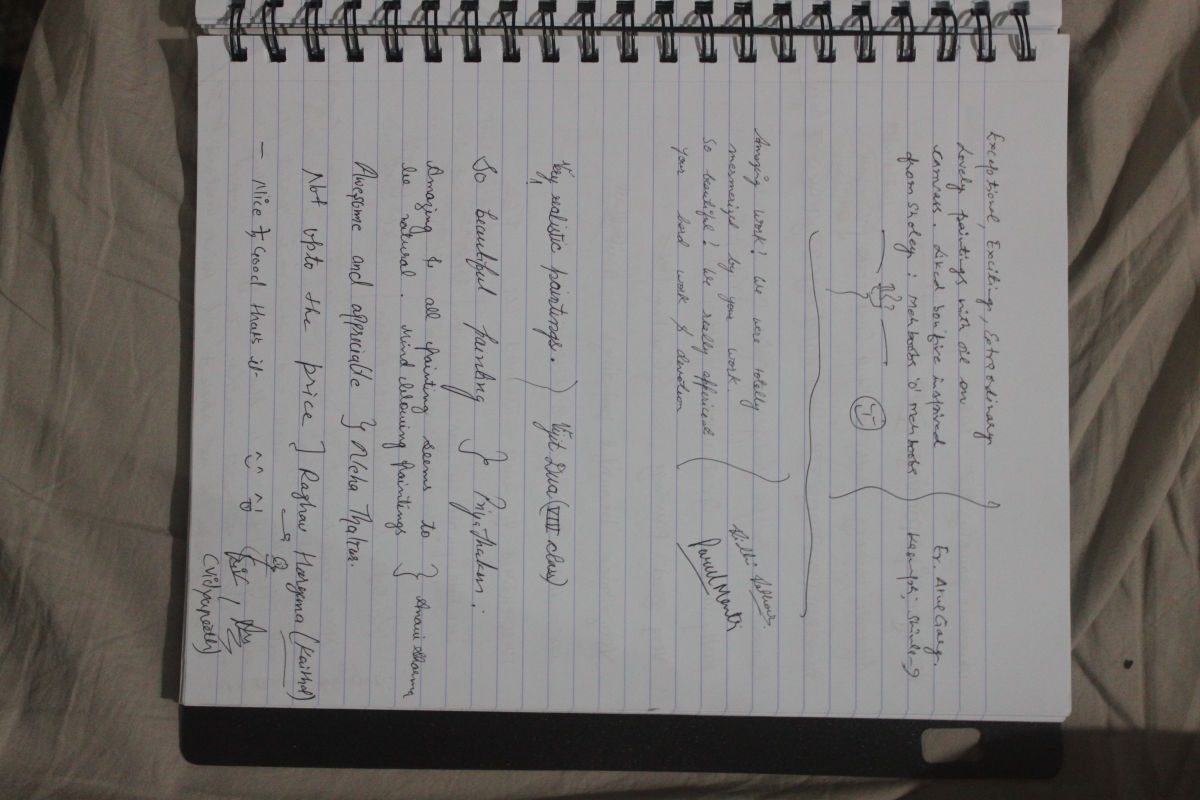 Exceptional, Exciting, Extraordinary
Lovely paintings with oil on
canvas. Liked bonfire inspired
from sholey : Mehbooba 'o' Mehbooba
Er. Atul Garg.
Amazing work! We were totally
mesmerized by your work
So beautiful! We really appriciate
your hard work & devotion
Very realistic paintings. ) Vijit Dua (VIII class)
So beautiful painting } Priya Thakur :
Amazing & all painting seems to
be natural. Mind blowing paintings } Sharma
Awesome and appreciable } Neha Thakur.
Not upto the price ] Raghav (Kaithal)
- Nice & Good thats it
(Vidyapeeth)